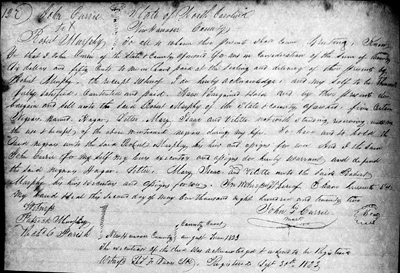 122) John Currie } State of North Carolina
To } New Hanover County
Robert Murphy } To all to whom these presents shall come Greeting. Know
Ye that I John Currie of the State & County aforesaid for and in consideration of the sum of
dollars and fifty to me in hand paid at the sealing and delivery of these presents by
Robert Murphy the receipt whereof I do hereby acknowledge and my self to be therewith
fully satisfied Contented and paid. Have Bargained Sold and by these presents do
bargain and sell unto the said Robert Murphy of the State & County aforesaid four Certain
Negroes Named Hagar, Mary Isaac and notwithstanding reserving unto me
the use & benefit of the above mentioned negroes during my life. To have and to hold the
Said negroes unto the said Robert Murphy his heirs and assigns for ever And I the said
John Currie for my Self my heirs executors and assigns do hereby warrant and defend
the said negroes Hagar Mary Isaac and unto the said Robert
Murphy his heirs executors and assigns for ever. In Witness Whereof I have hereunto Set
My hand & Seal this Second day of May One thousand eight hundred and twenty two
Witness John Currie
Patrick Murphy Seal
Thos C County Court
New Hanover County August Term 1823
The execution of this deed was acknowledged & ordered to be Registered
Witness Clk Registered Sept 30th 1823